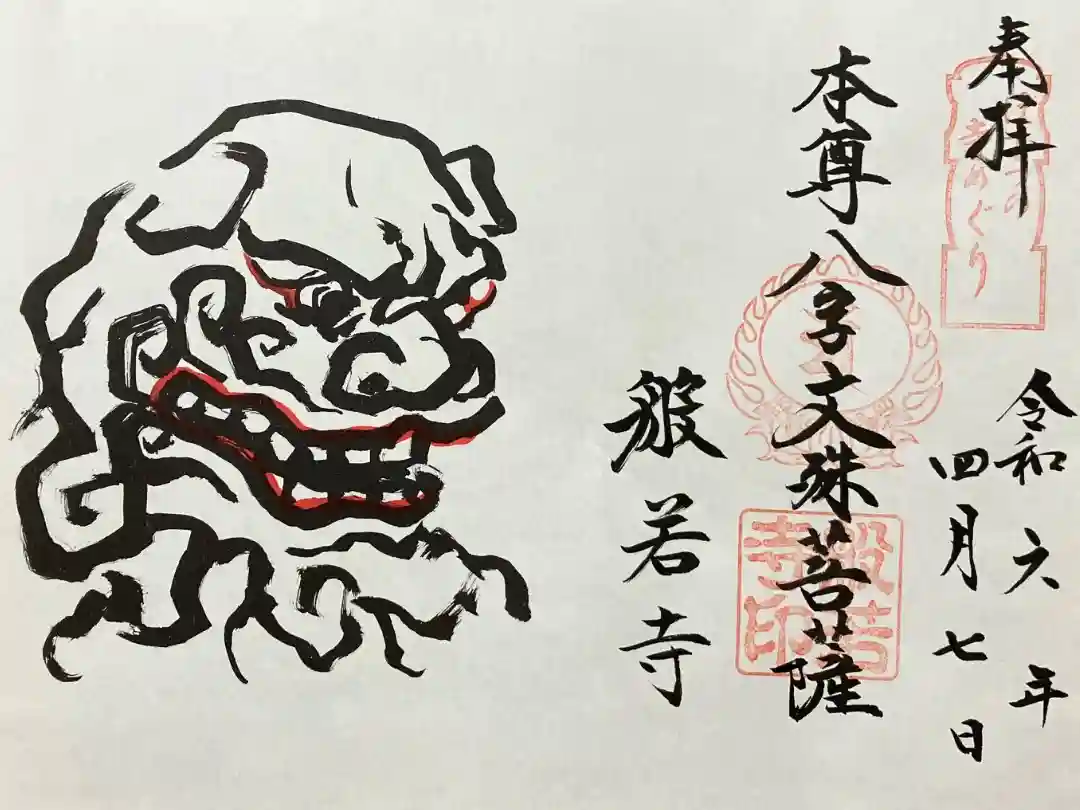 奉拝
令和六年
四月七日
本尊八字文殊菩薩
般若寺
般若寺印
めぐり